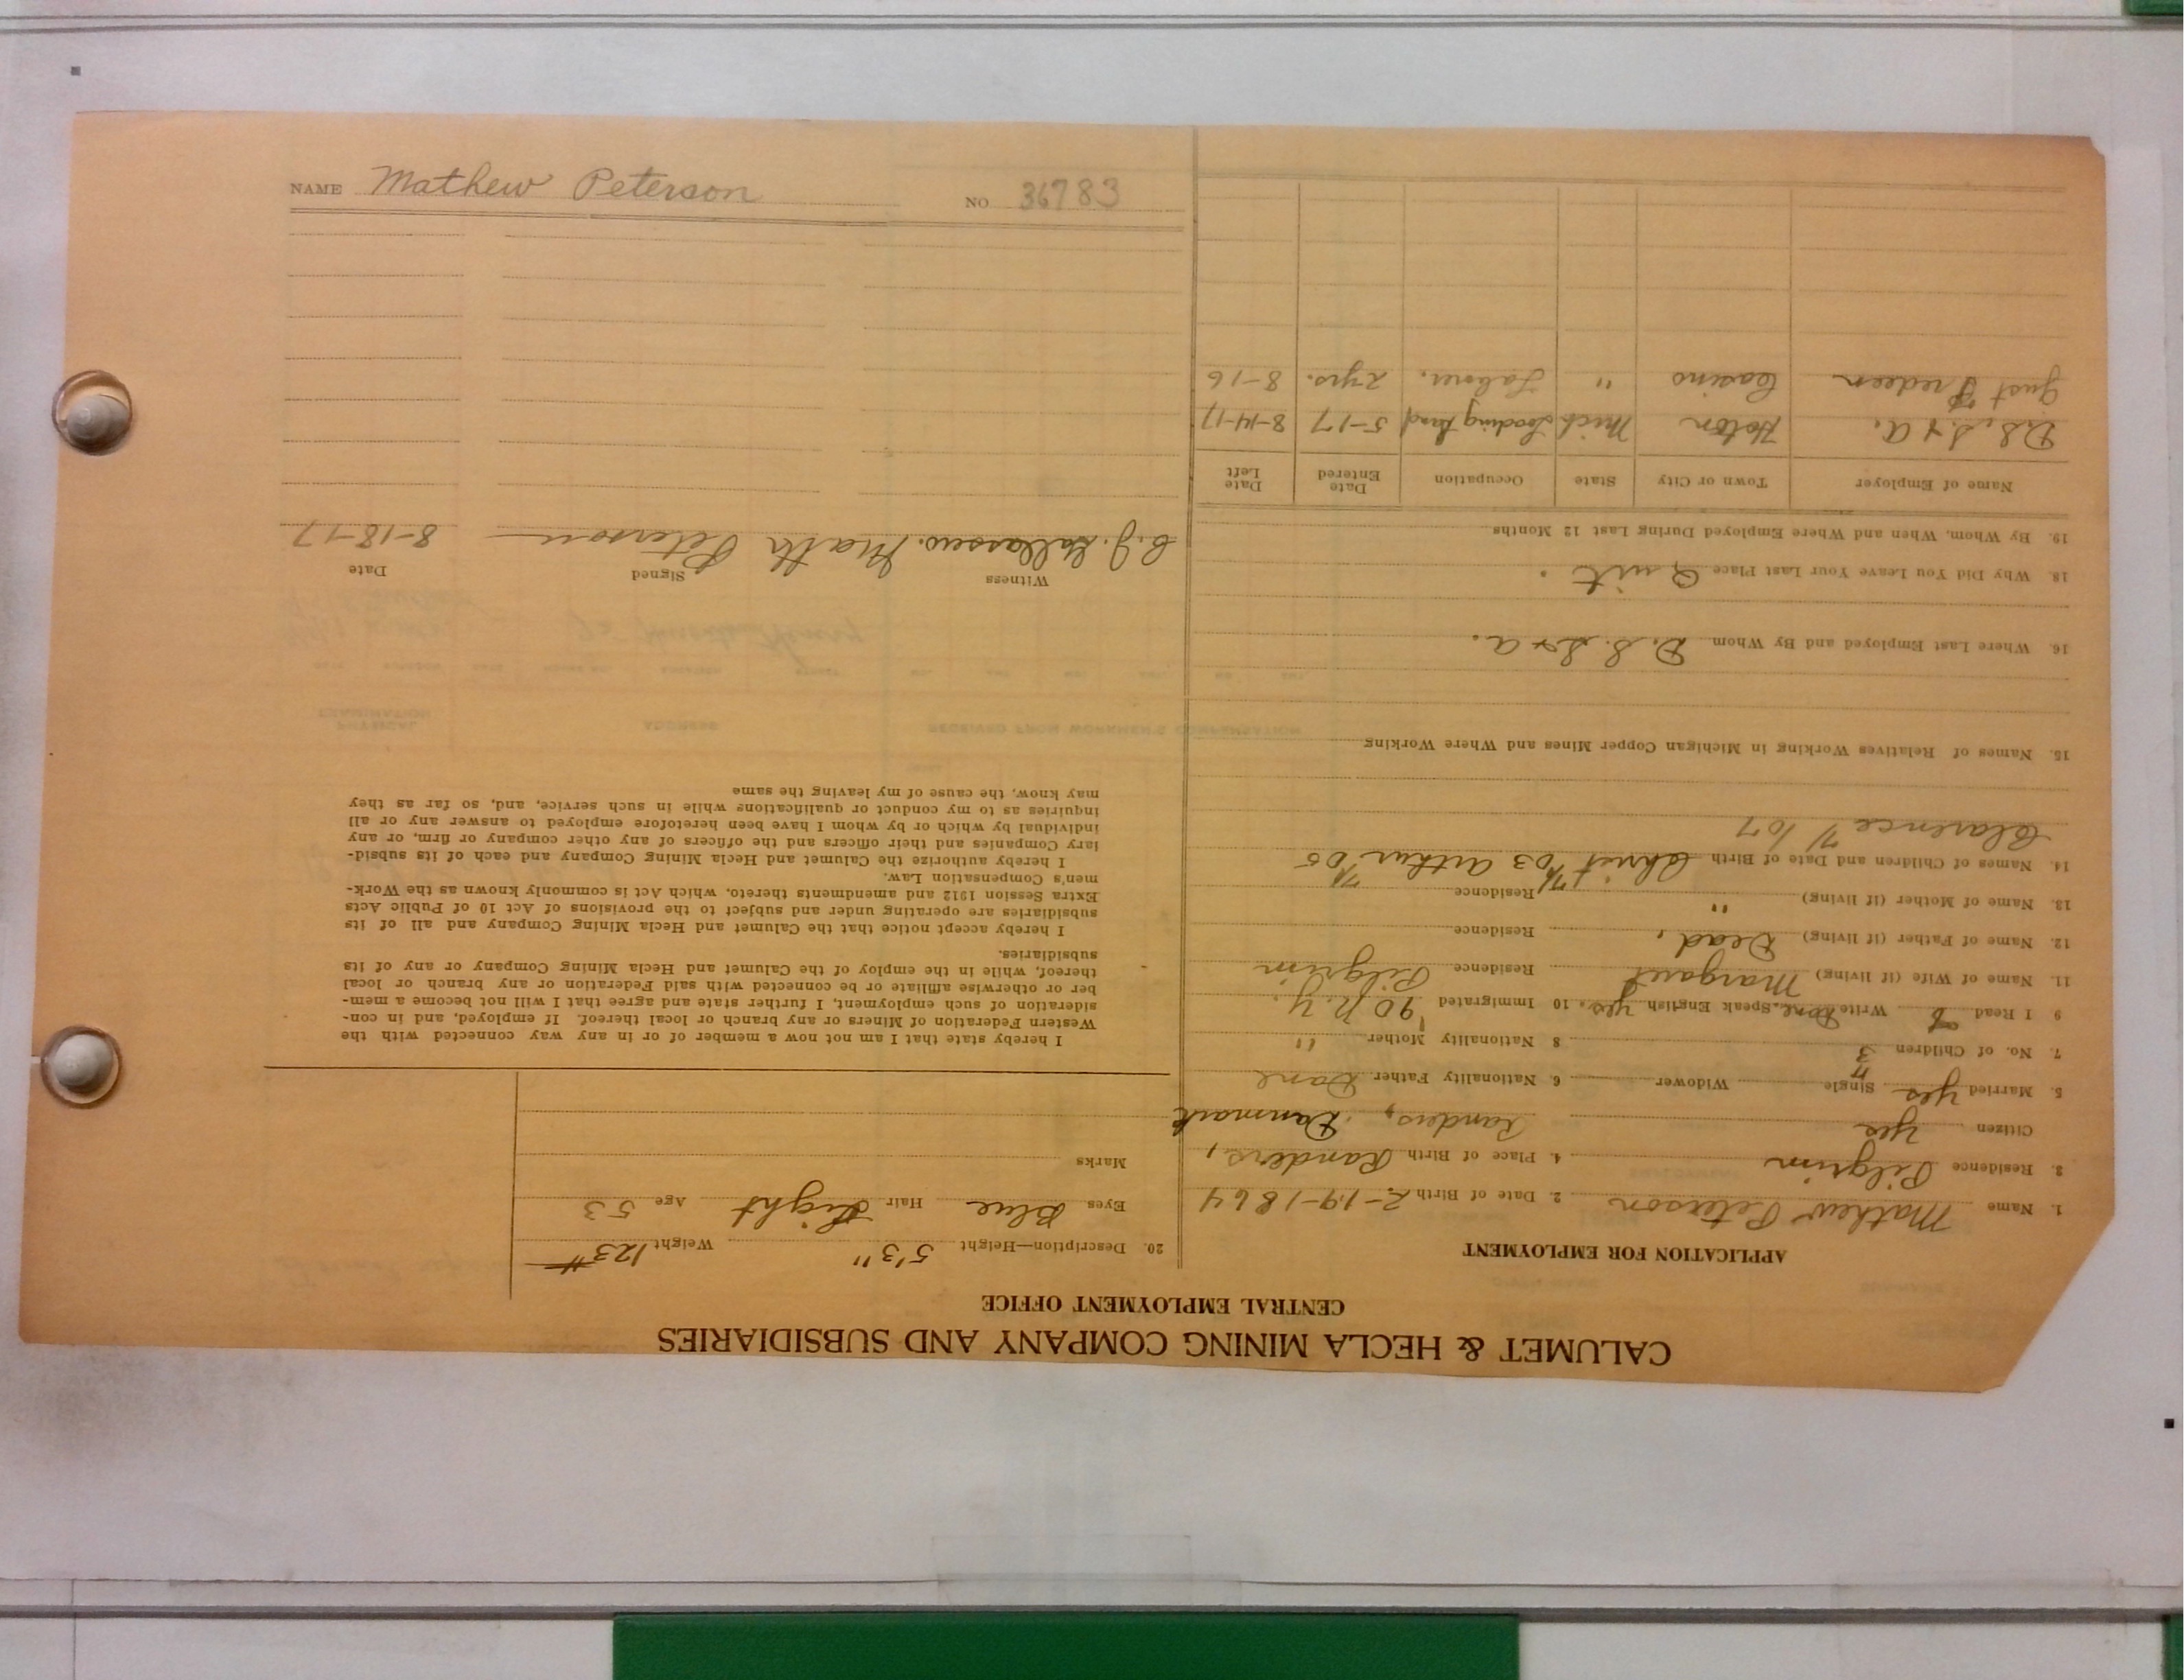 CALUMET & HECLA MINING COMPANY AND SUBSIDIARIES
CENTRAL EMPLOYMENT OFFICE
APPLICATION FOR EMPLOYMENT
1. Name Mathew Peterson 2. Date of Birth 2-19-1864
3. Residence Pilgrim 4. Place of Birth Randers,
Citizen yes Randers, Danmark
5. Married yes Single Widower 6. Nationality Father Dane
7. No. of Children 3 8 Nationality Mother "
9 I Read Write Dane. Speak English yes. 10 Immigrated 90 N.Y.
11. Name of Wife (if living) Margaret Residence Pilgrim
12. Name of Father (if living) Dead, Residence
13. Name of Mother (if living) " Residence
14. Names of Children and Date of Birth Christ 03 Arthur 05
Clarence 07
15. Names of Relatives Working in Michigan Copper Mines and Where Working
16. Where Last Employed and By Whom D.S.S & A.
18. Why Did You Leave Your Last Place Quit.
19. By Whom, When and Where Employed During Last 12 Months
Name of Employer Town or City State Occupation Date Entered Date Left
D.S.S. & A. Hoton Mich Loading Sand 5-17 8-14-17
Gust Fredeen Casino " Labor. 2 yrs. 8-16
20. Description—Height 5'3" Weight 123#
Eyes Blue Hair Light Age 53
Marks
I hereby state that I am not now a member of or in any way connected with the
Western Federation of Miners or any branch or local thereof. If employed, and in con-
sideration of such employment, I further state and agree that I will not become a mem-
ber or otherwise affiliate or be connected with said Federation or any branch or local
thereof, while in the employ of the Calumet and Hecla Mining Company or any of its
subsidiaries.
I hereby accept notice that the Calumet and Hecla Mining Company and all of its
subsidiaries are operating under and subject to the provisions of Act 10 of Public Acts
Extra Session 1912 and amendments thereto, which Act is commonly known as the Work-
men's Compensation Law.
I hereby authorize the Calumet and Hecla Mining Company and each of its subsid-
iary Companies and their officers and the officers of any other company or firm, or any
individual by which or by whom I have been heretofore employed to answer any or all
inquiries as to my conduct or qualifications while in such service, and, so far as they
may know, the cause of my leaving the same
Witness Signed Date
C.J. Math Peterson 8-18-17
NAME Mathew Peterson NO 36783